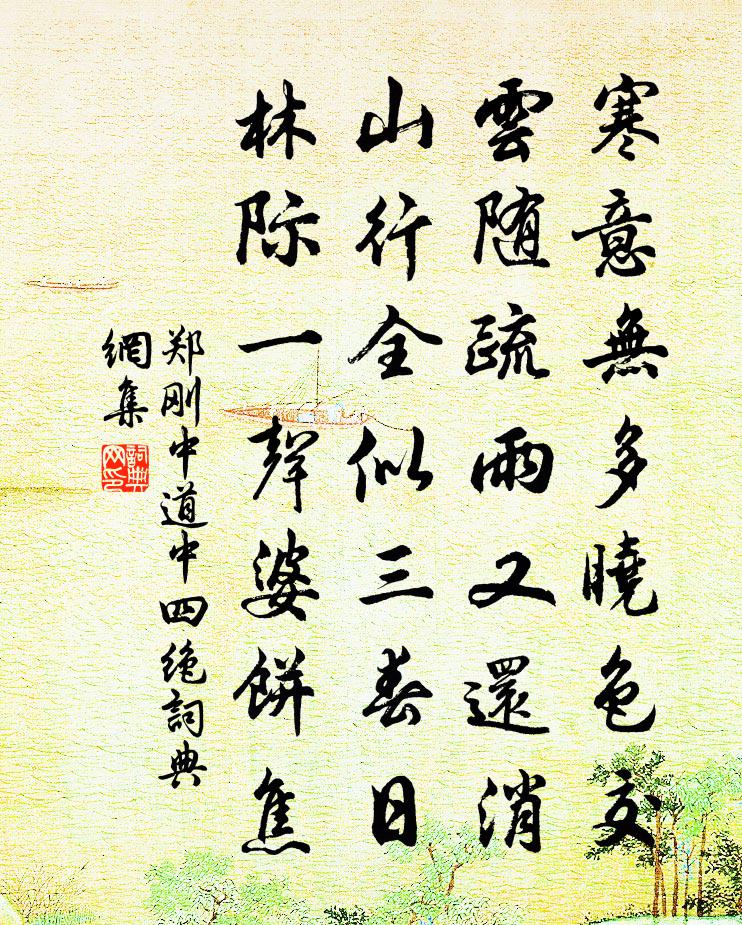 寒意無多曉色交
雲随疏雨又還消
山行全似三春日
林际一聲婆餅焦
郑刚中道中四绝詞典
網集
詞典
网印